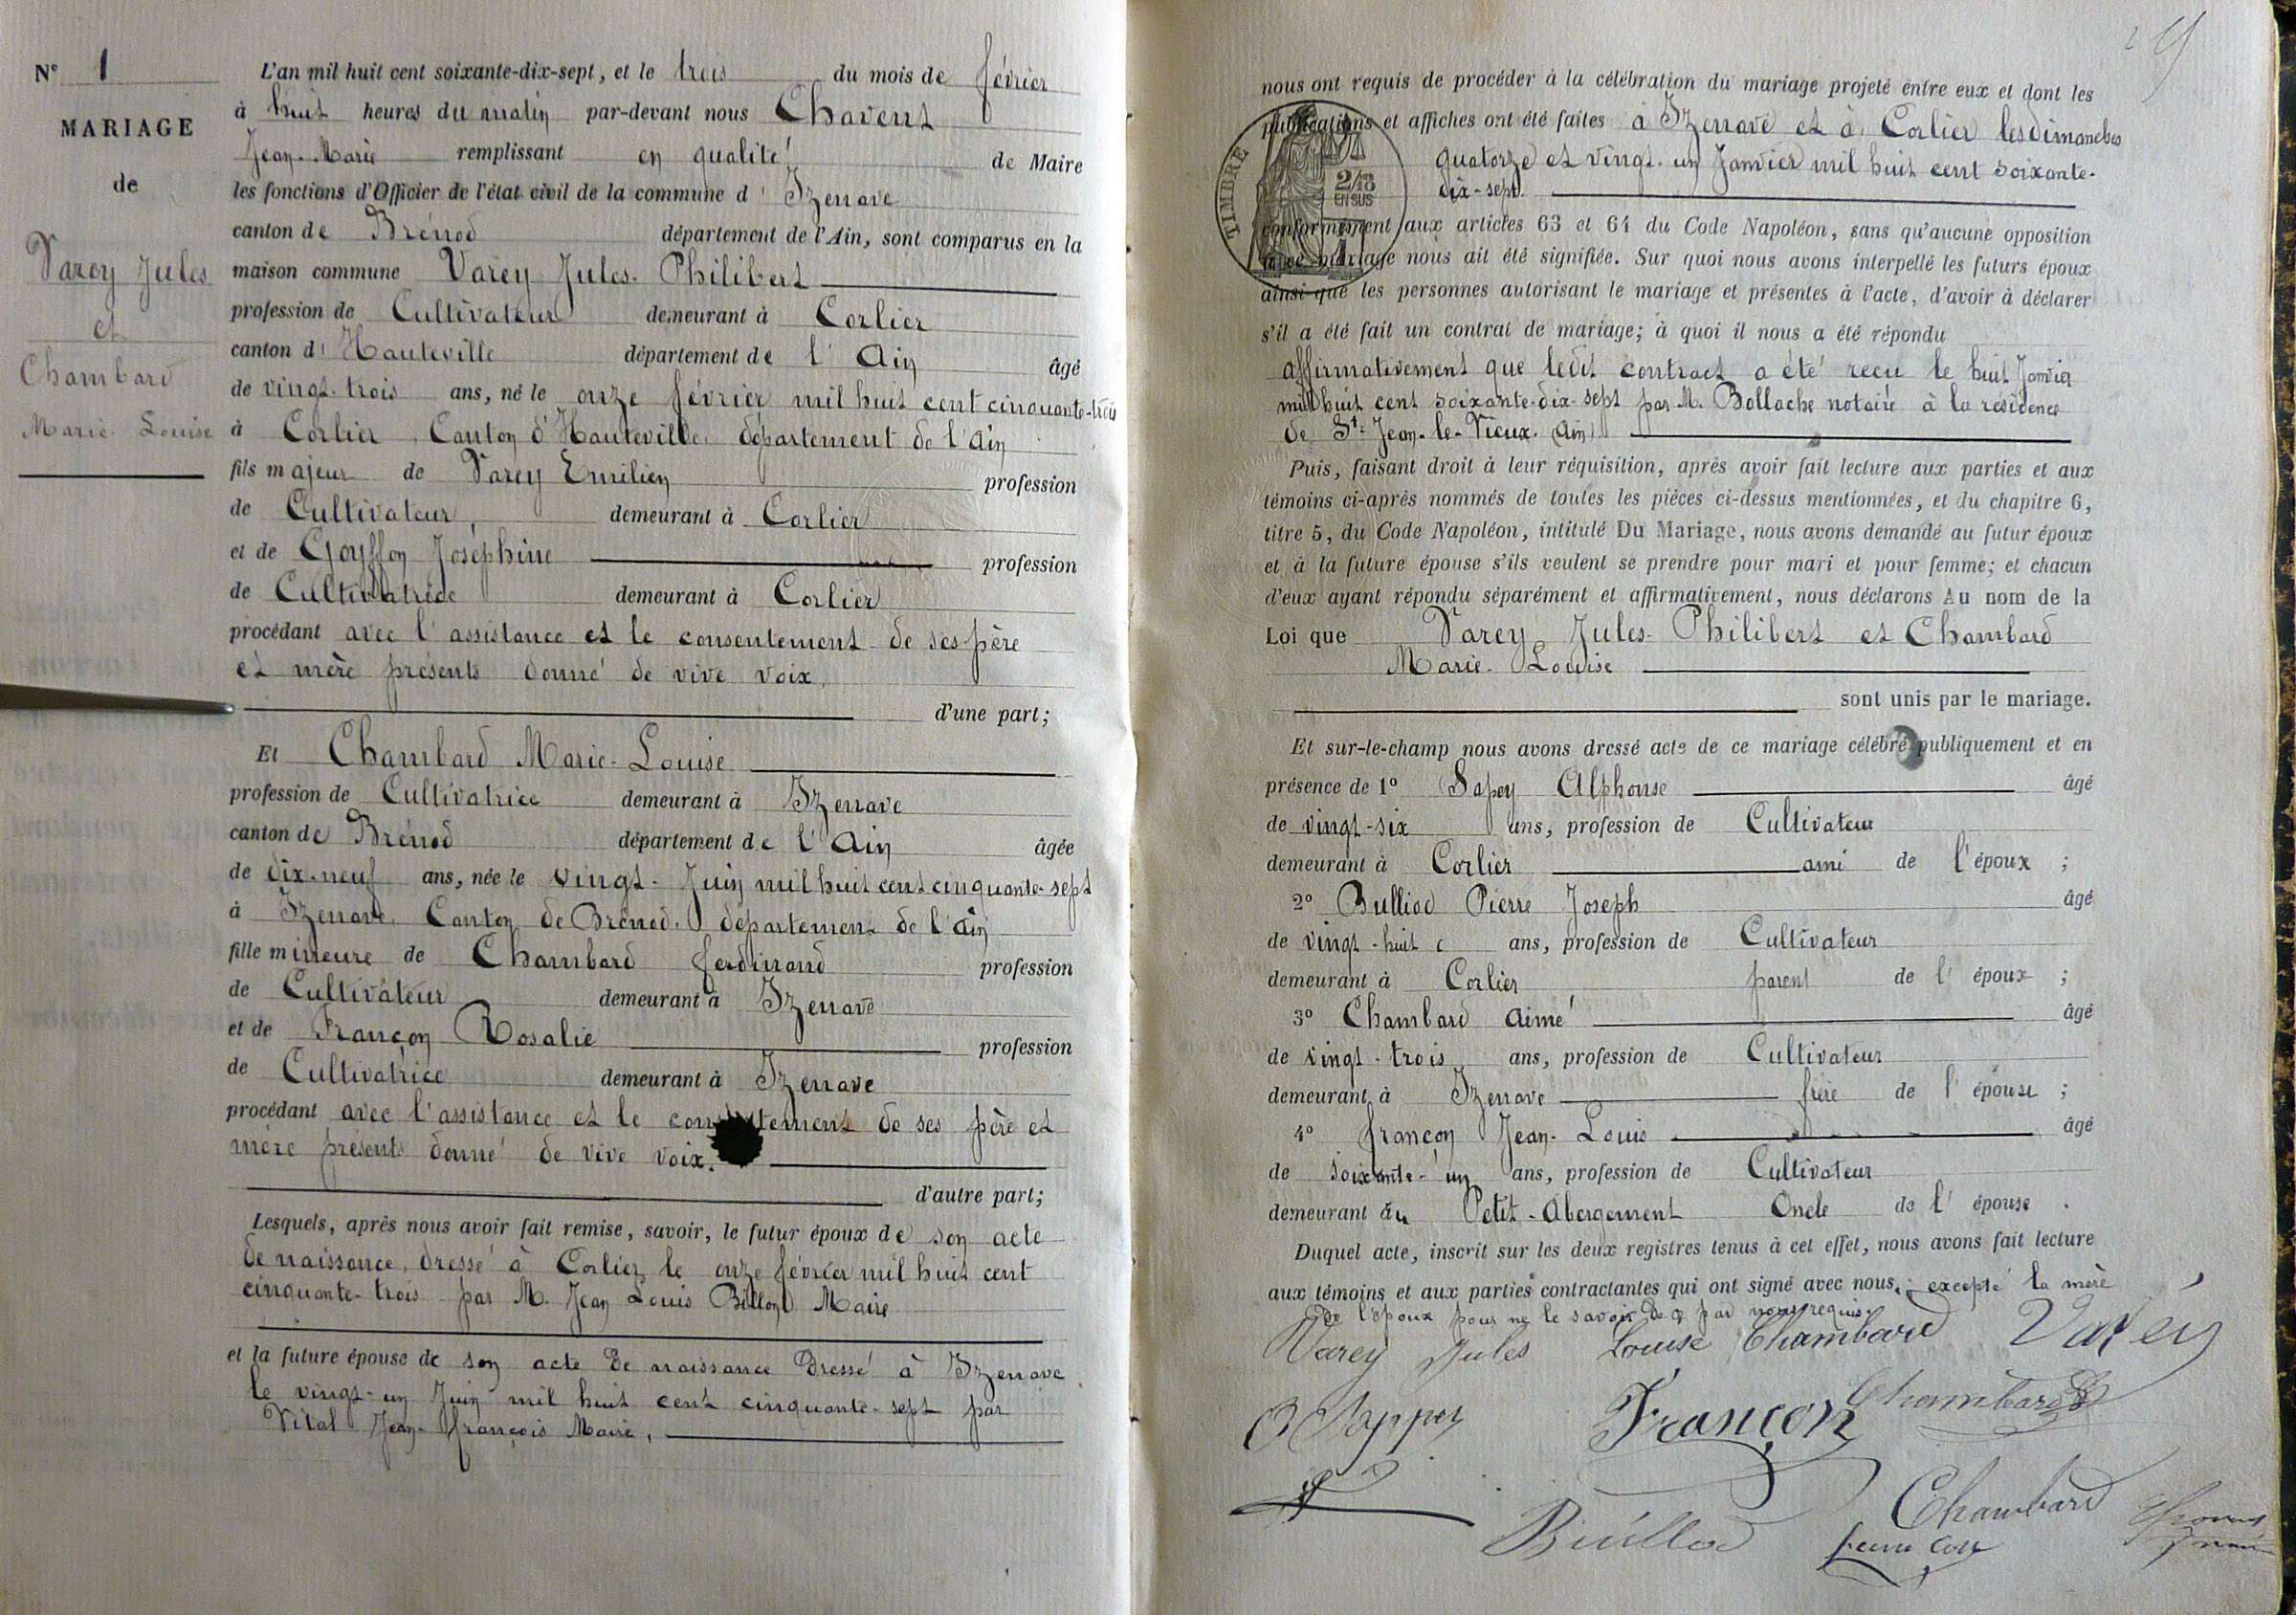 N° 1
MARIAGE
de
Varey Jules
et
Chambard
Marie-Louise
L'an mil huit cent soixante-dix-sept, et le trois du mois de février
à huit heures du matin par-devant nous Chavent
Jean-Marie remplissant en qualité de Maire
les fonctions d'Officier de l'état civil de la commune d'Izenave
canton de Brénod département de l'Ain, sont comparus en la
maison commune Varey Jules-Philibert
profession de Cultivateur demeurant à Corlier
canton d'Hauteville département de l'Ain âgé
de vingt-trois ans, né le onze février mil huit cent cinquante-trois
à Corlier, Canton d'Hauteville, département de l'Ain
fils majeur de Varey Emilien profession
de Cultivateur, demeurant à Corlier
et de Goyffon Joséphine profession
de Cultivatrice demeurant à Corlier
procédant avec l'assistance et le consentement de ses père
et mère présents donné de vive voix,
d'une part;
Et Chambard Marie-Louise
profession de Cultivatrice demeurant à Izenave
canton de Brénod département de l'Ain âgée
de dix-neuf ans, née le vingt-Juin mil huit cent cinquante-sept
à Izenave, Canton de Brénod, département de l'Ain
fille mineure de Chambard ferdinand profession
de Cultivateur demeurant à Izenave
et de Françon Rosalie profession
de Cultivatrice demeurant à Izenave
procédant avec l'assistance et le consentement de ses père et
mère présents donné de vive voix.
d'autre part;
Lesquels, après nous avoir fait remise, savoir, le futur époux de son acte
de naissance, dressé à Corlier, le onze février mil huit cent
cinquante-trois par M. Jean Louis Billond Maire
et la future épouse de son acte de naissance dressé à Izenave
le vingt-un Juin mil huit cent cinquante-sept par
Vital Jean-françois Maire,
nous ont requis de procéder à la célébration du mariage projeté entre eux et dont les
publications et affiches ont été faites à Izenave et à Corlier les dimanches
quatorze et vingt-un Janvier mil huit cent soixante-
dix-sept.
TIMBRE
2/10
EN SUS
conformément aux articles 63 et 64 du Code Napoléon, sans qu'aucune opposition
à ce mariage nous ait été signifiée. Sur quoi nous avons interpellé les futurs époux
ainsi que les personnes autorisant le mariage et présentes à l'acte, d'avoir à déclarer
s'il a été fait un contrat de mariage; à quoi il nous a été répondu
affirmativement que ledit contract a été recu le huit Janvier
mil huit cent soixante-dix-sept par M. Bollache notaire à la résidence
de St-Jean-le-Vieux. (Ain)
Puis, faisant droit à leur réquisition, après avoir fait lecture aux parties et aux
témoins ci-après nommés de toutes les pièces ci-dessus mentionnées, et du chapitre 6,
titre 5, du Code Napoléon, intitulé Du Mariage, nous avons demandé au futur époux
et à la future épouse s'ils veulent se prendre pour mari et pour femme; et chacun
d'eux ayant répondu séparément et affirmativement, nous déclarons Au nom de la
Loi que Varey Jules-Philibert et Chambard
Marie-Louise
sont unis par le mariage.
Et sur-le-champ nous avons dressé acte de ce mariage célébré publiquement et en
présence de 1° Sapey Alphonse âgé
de vingt-six ans, profession de Cultivateur
demeurant à Corlier ami de l'époux ;
2° Bulliod Pierre Joseph âgé
de vingt-huit ans, profession de Cultivateur
demeurant à Corlier parent de l'époux ;
3° Chambard Aimé âgé
de vingt-trois ans, profession de Cultivateur
demeurant à Izenave frère de l'épouse ;
4° françon Jean-Louis âgé
de soixante-un ans, profession de Cultivateur
demeurant au Petit-Abergement Oncle de l'épouse .
Duquel acte, inscrit sur les deux registres tenus à cet effet, nous avons fait lecture
aux témoins et aux parties contractantes qui ont signé avec nous, excepté la mère
de l'époux pour ne le savoir de q par nous requis.
Varey Jules Louise Chambard Varey
A Sappey Françon Chambard
Bulliod Chambard